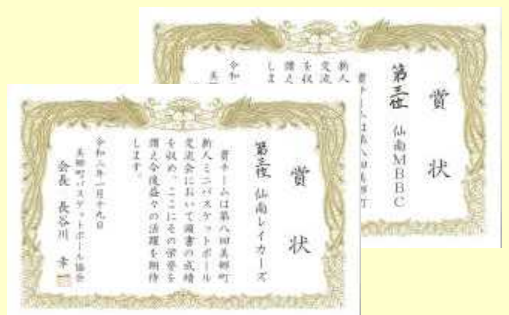 賞状
第三位 仙南MBBC
貴チームは第八回美郷町
新人
交流
を収
讃え
しま
令和
美
賞状
第三位 仙南レイカーズ
貴チームは第八回美郷町
新人ミニバスケットボール
交流会において頭書の成績
を収め、ここにその栄誉を
讃え今後益々の活躍を期待
します。
令和二年一月十九日
美郷町バスケットボール協会
会長 長谷川 幸